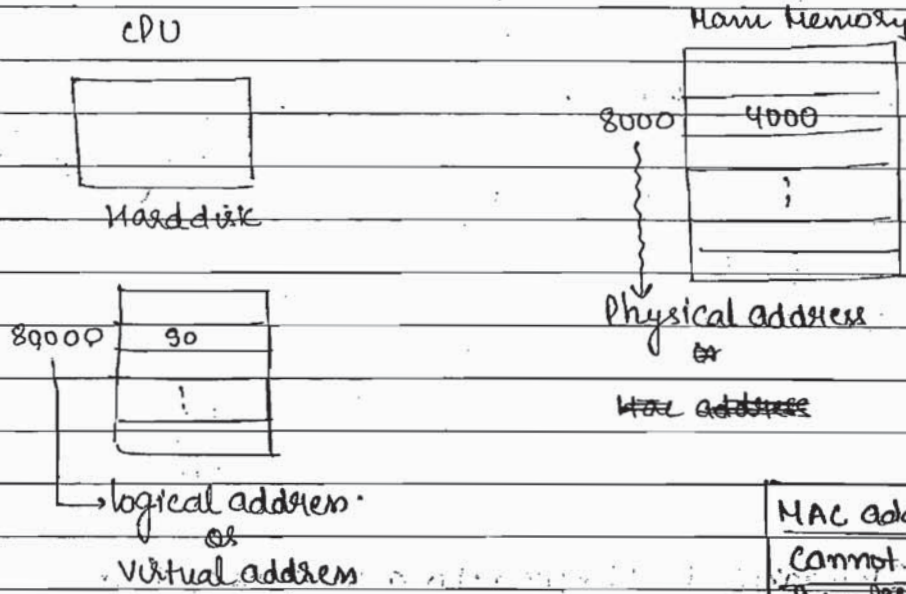 CPU
Main Memory
8000 4000
Harddisk
Physical address
or
MAC address
89000 90
logical address.
or
Virtual address
MAC add
cannot